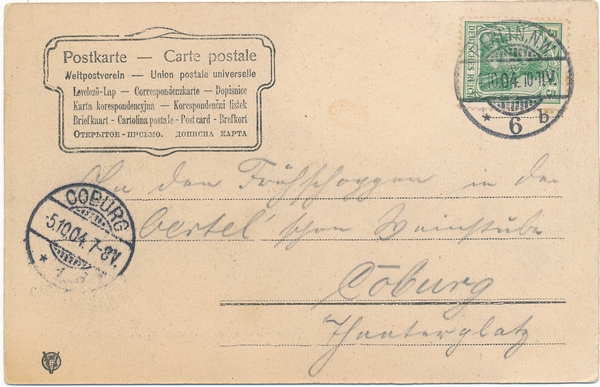 Postkarte — Carte postale
Weltpostverein — Union postale universelle
Levelező-Lap — Correspondenzkarte — Dopisnice
Karta korespondencyjna — Korespondenční listek
Briefkaart - Cartolina postale - Post card - Brefkort
Открытое-письмо. дописна карта
DEUTSCHES REICH
BERLIN, N.W.
10.04. 10-11V.
* 6 b
COBURG
5.10.04. 7-8V.
* 1
An den Frühschoppen in der
Oertel'schen Weinstube
Coburg
Theaterplatz